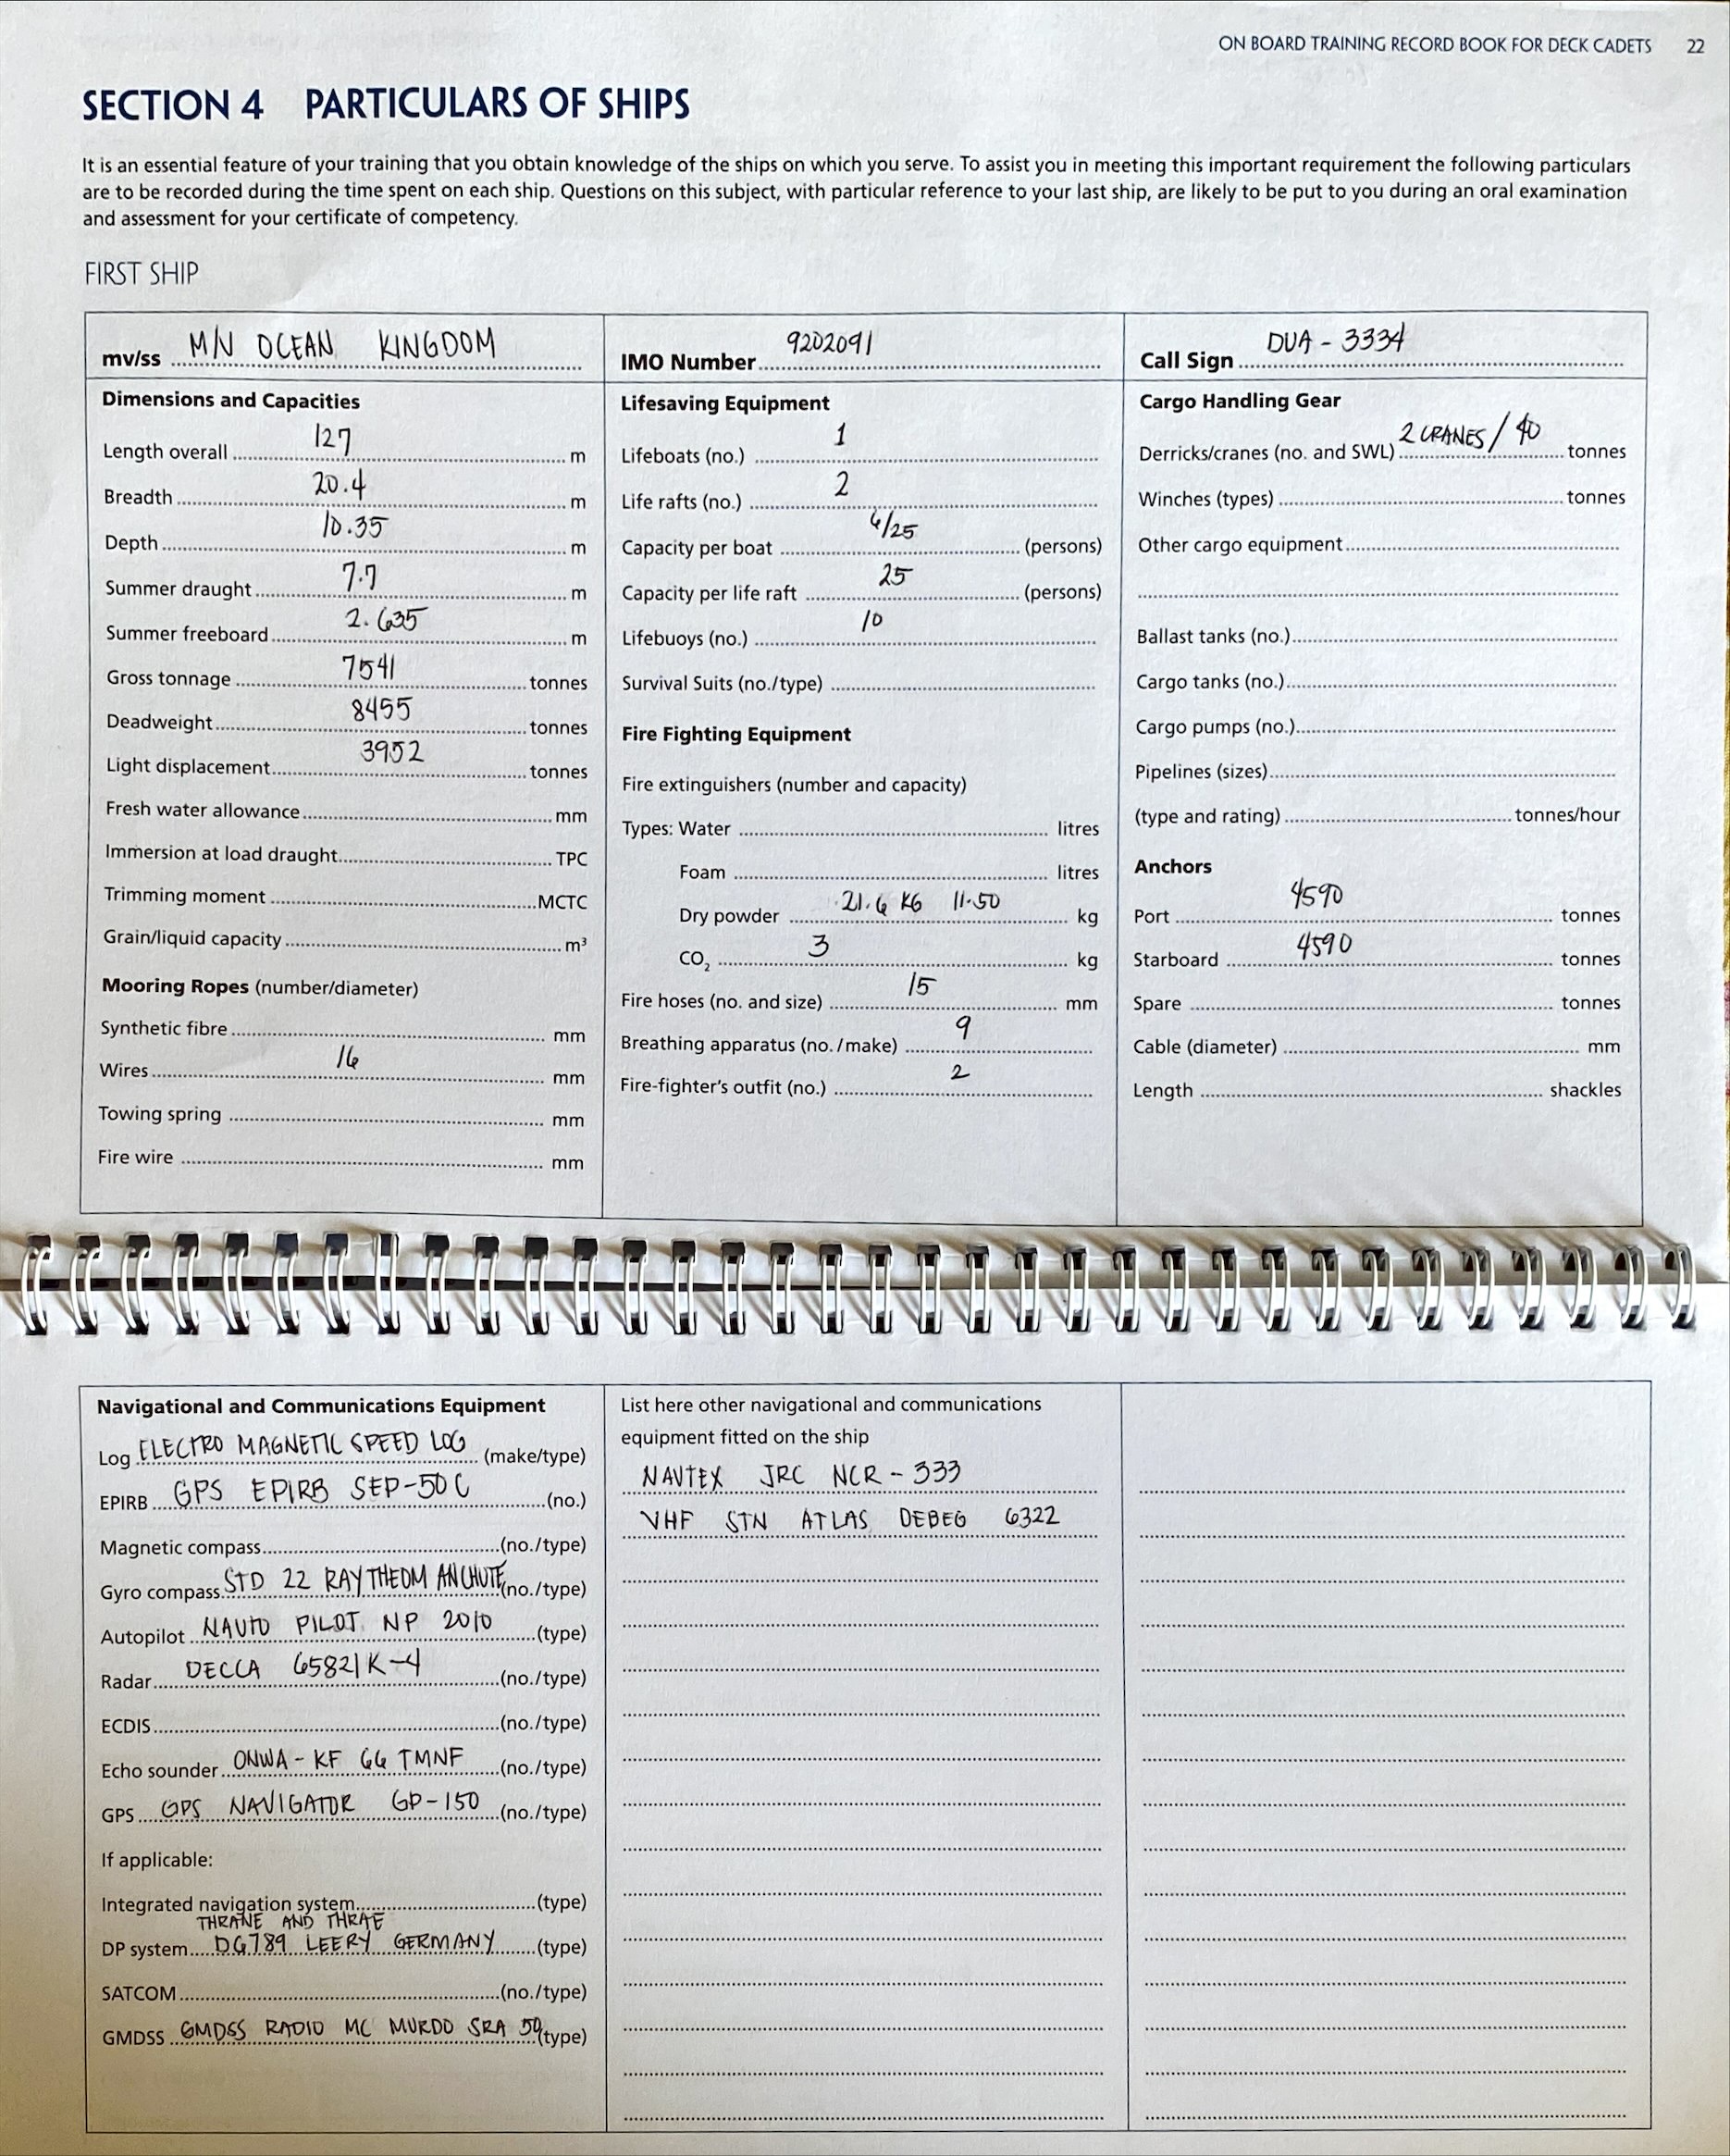 ON BOARD TRAINING RECORD BOOK FOR DECK CADETS 22
SECTION 4 PARTICULARS OF SHIPS
It is an essential feature of your training that you obtain knowledge of the ships on which you serve. To assist you in meeting this important requirement the following particulars
are to be recorded during the time spent on each ship. Questions on this subject, with particular reference to your last ship, are likely to be put to you during an oral examination
and assessment for your certificate of competency.
FIRST SHIP
mv/ss M/N OCEAN KINGDOM
Dimensions and Capacities
Length overall 127 m
Breadth 20.4 m
Depth 10.35 m
Summer draught 7.7 m
Summer freeboard 2.635 m
Gross tonnage 7541 tonnes
Deadweight 8455 tonnes
Light displacement 3952 tonnes
Fresh water allowance mm
Immersion at load draught TPC
Trimming moment MCTC
Grain/liquid capacity m³
Mooring Ropes (number/diameter)
Synthetic fibre mm
Wires 16 mm
Towing spring mm
Fire wire mm
IMO Number 9202091
Lifesaving Equipment
Lifeboats (no.) 1
Life rafts (no.) 2
Capacity per boat 6/25 (persons)
Capacity per life raft 25 (persons)
Lifebuoys (no.) 10
Survival Suits (no./type)
Fire Fighting Equipment
Fire extinguishers (number and capacity)
Types: Water litres
Foam litres
Dry powder 21.6 KG 11.50 kg
CO₂ 3 kg
Fire hoses (no. and size) 15 mm
Breathing apparatus (no./make) 9
Fire-fighter's outfit (no.) 2
Call Sign DUA - 3334
Cargo Handling Gear
Derricks/cranes (no. and SWL) 2 CRANES / 40 tonnes
Winches (types) tonnes
Other cargo equipment
Ballast tanks (no.)
Cargo tanks (no.)
Cargo pumps (no.)
Pipelines (sizes)
(type and rating) tonnes/hour
Anchors
Port 4590 tonnes
Starboard 4590 tonnes
Spare tonnes
Cable (diameter) mm
Length shackles
Navigational and Communications Equipment
Log ELECTRO MAGNETIC SPEED LOG (make/type)
EPIRB GPS EPIRB SEP-50C (no.)
Magnetic compass (no./type)
Gyro compass STD 22 RAYTHEOM ANCHUTE (no./type)
Autopilot NAUTO PILOT NP 2010 (type)
Radar DECCA 65821K-4 (no./type)
ECDIS (no./type)
Echo sounder ONWA - KF 66 TMNF (no./type)
GPS GPS NAVIGATOR GP-150 (no./type)
If applicable:
Integrated navigation system (type)
THRANE AND THRAE
DP system DG789 LEERY GERMANY (type)
SATCOM (no./type)
GMDSS GMDSS RADIO MC MURDO SRA 50 (type)
List here other navigational and communications
equipment fitted on the ship
NAVTEX JRC NCR - 333
VHF STN ATLAS DEBEG 6322